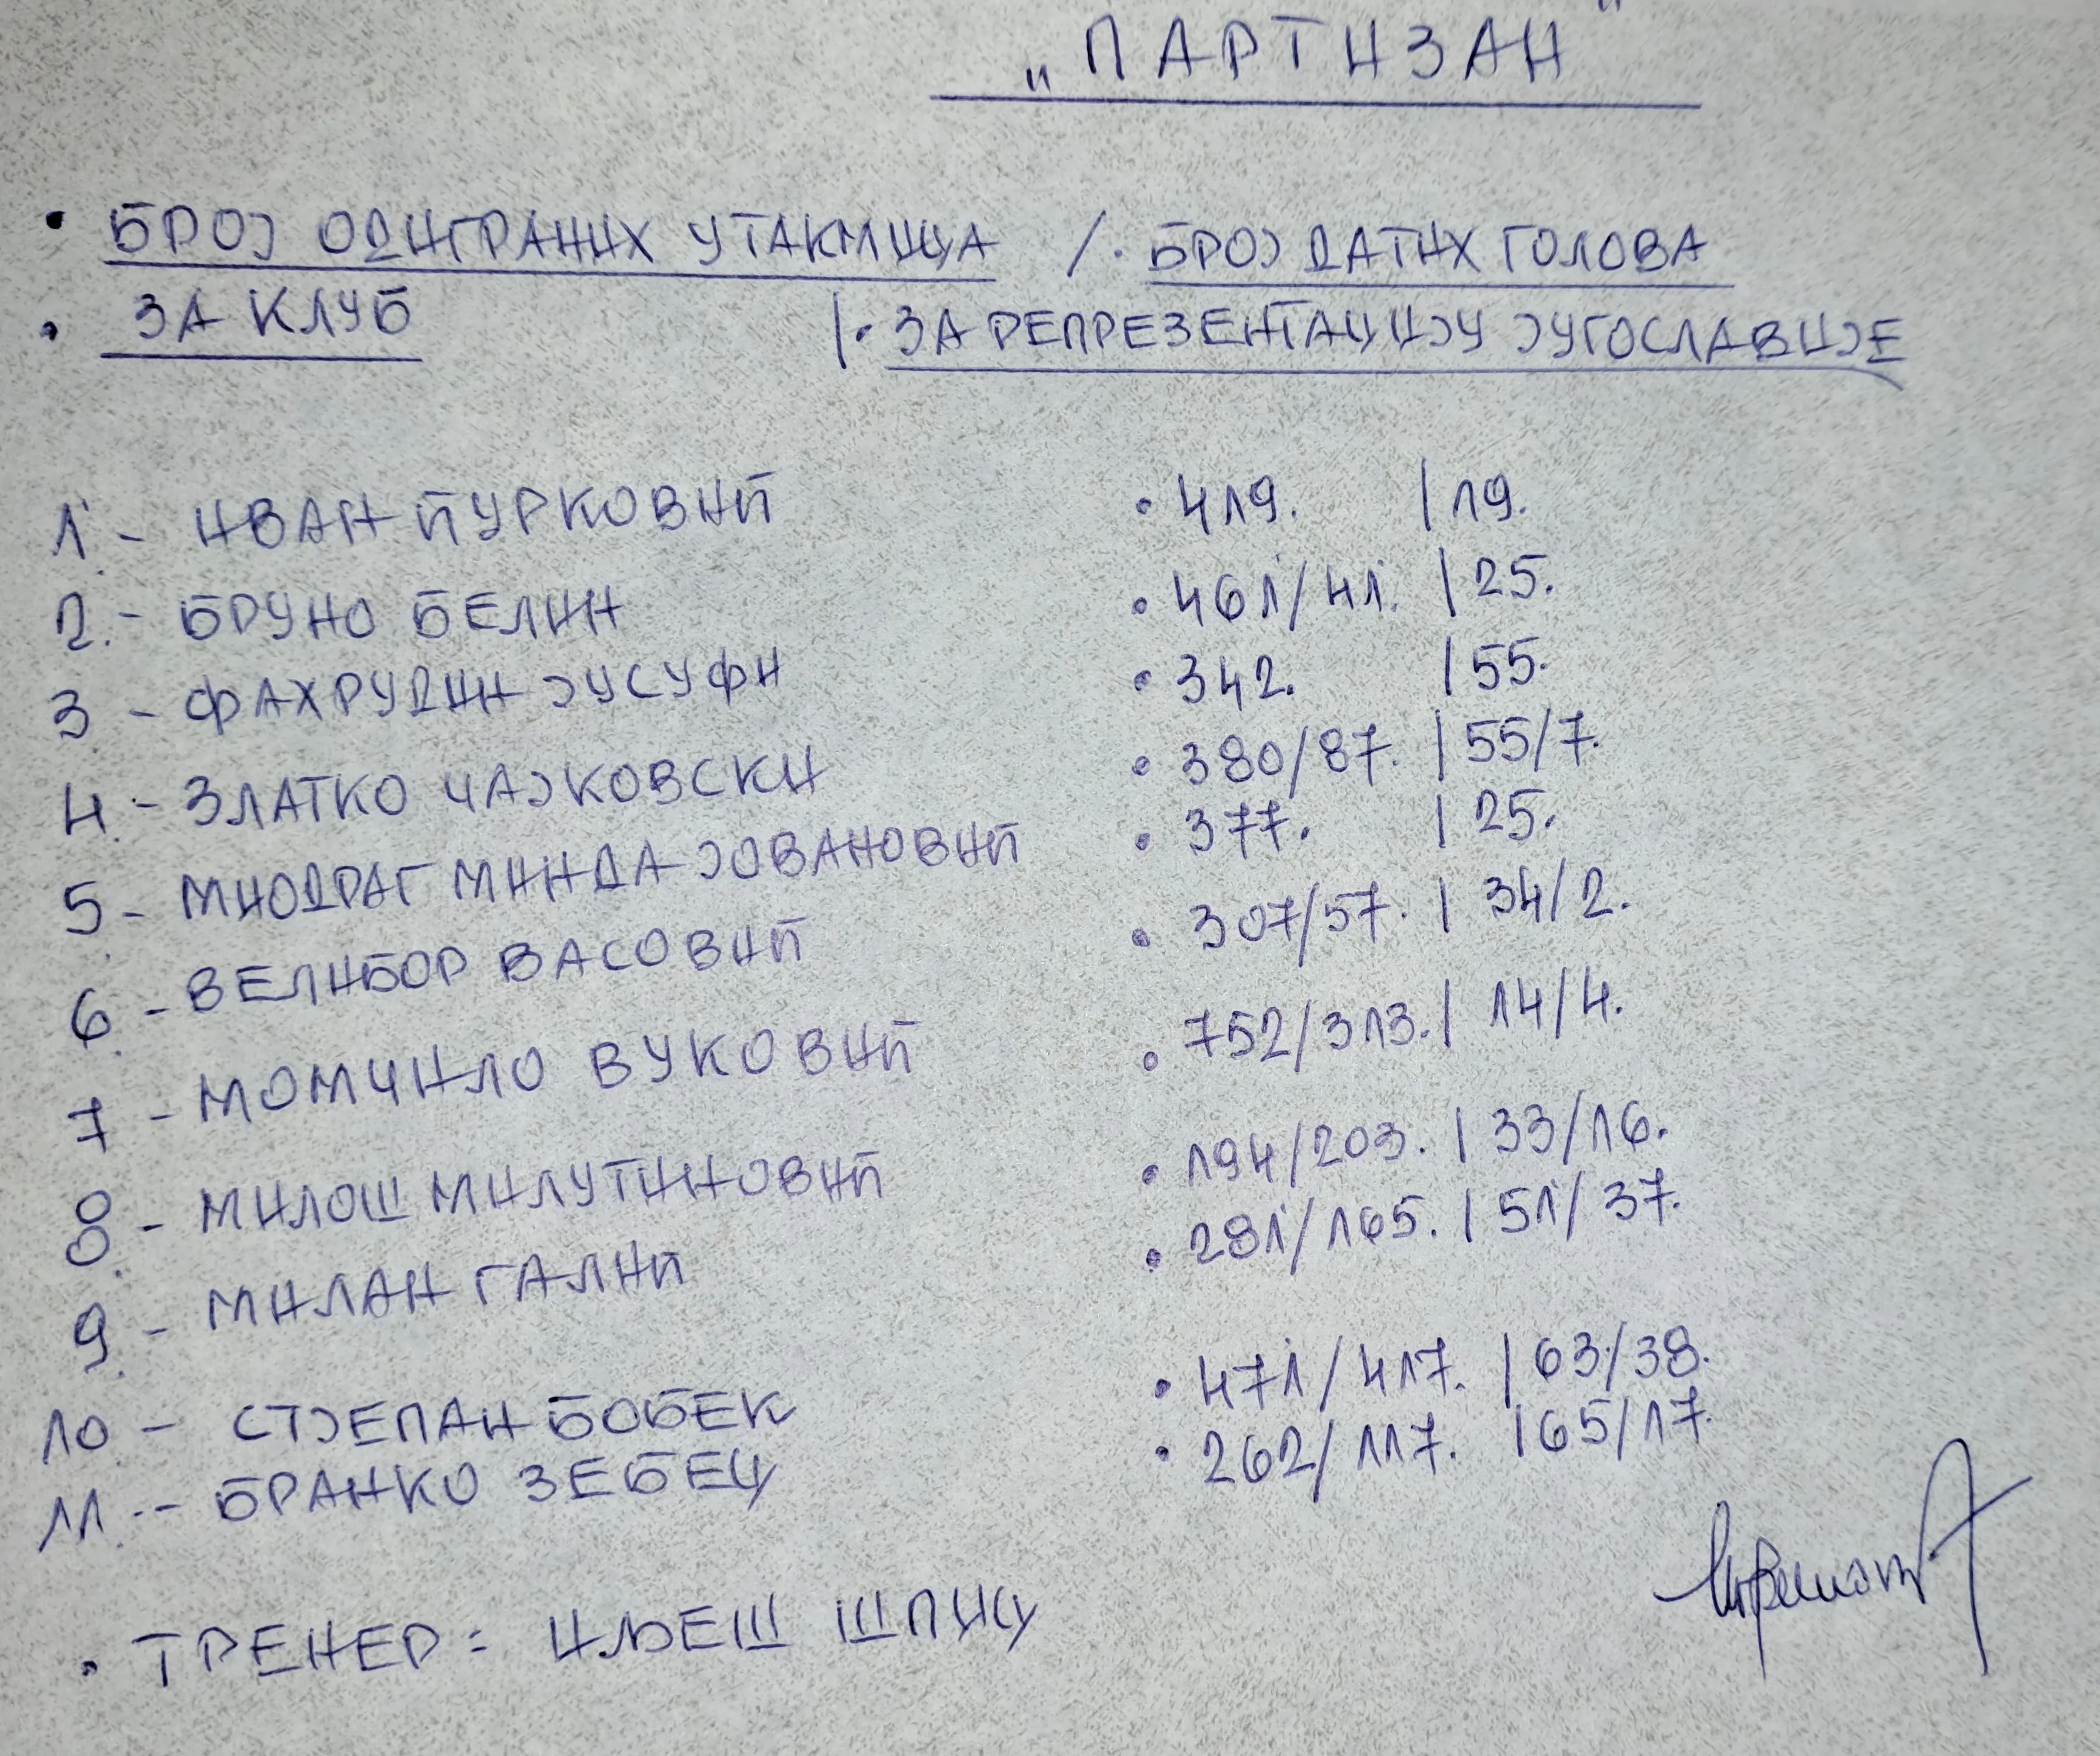 „ПАРТИЗАН"
• БРОЈ ОДИГРАНИХ УТАКМИЦА /. БРОЈ ДАТИХ ГОЛОВА
• ЗА КЛУБ |• ЗА РЕПРЕЗЕНТАЦИЈУ ЈУГОСЛАВИЈЕ
1. - ИВАН ЋУРКОВИЋ • 419. | 19.
2. - БРУНО БЕЛИН • 461/41. | 25.
3 - ФАХРУДИН ЈУСУФИ • 342. | 55.
4. - ЗЛАТКО ЧАЈКОВСКИ • 380/87. | 55/7.
5. - МИОДРАГ МИНДА ЈОВАНОВИЋ • 377. | 25.
6. - ВЕЛИБОР ВАСОВИЋ • 307/57. | 34/2.
7 - МОМЧИЛО ВУКОВИЋ • 752/313. | 14/4.
8. - МИЛОШ МИЛУТИНОВИЋ • 194/203. | 33/16.
9. - МИЛАН ГАЛИЋ • 281/165. | 51/37.
10. - СТЈЕПАН БОБЕК • 471/417. | 63/38.
11. - БРАНКО ЗЕБЕЦ • 262/117. | 65/17.
• ТРЕНЕР: ИЉЕШ ШПИЦ